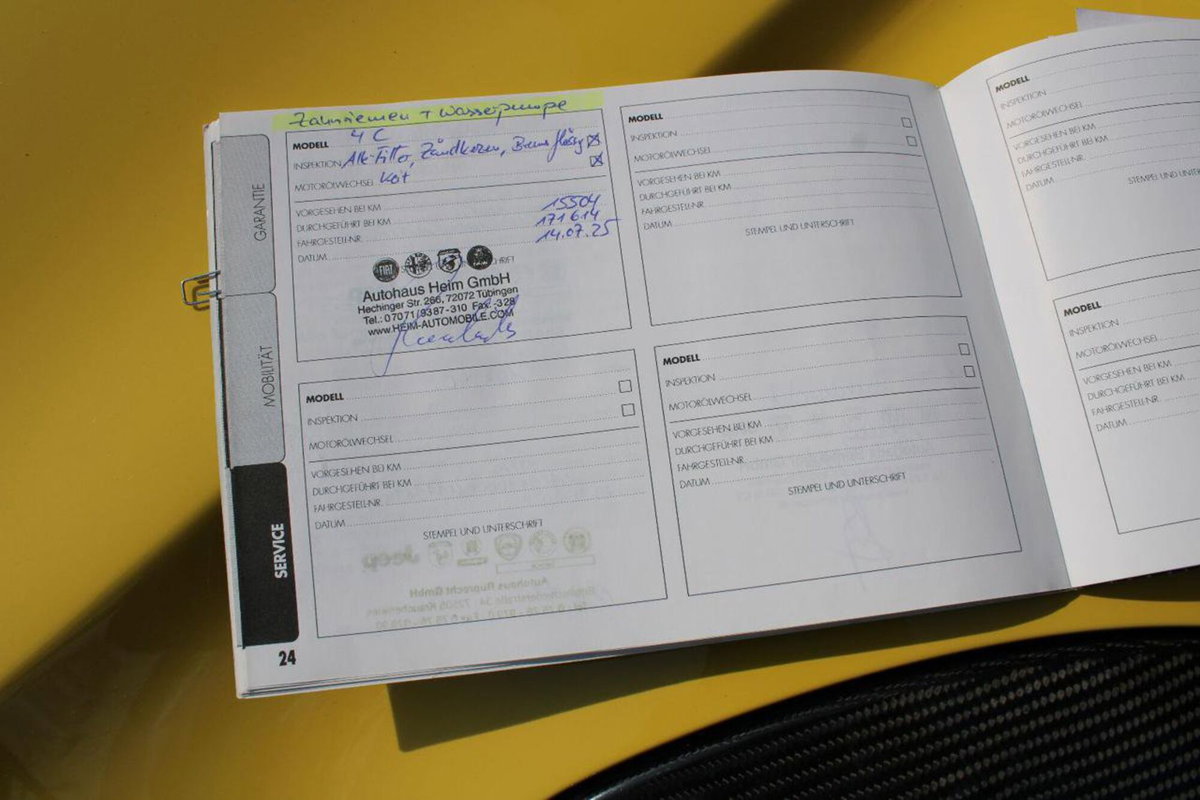 Zahnriemen + Wasserpumpe
MODELL 4C
INSPEKTION Alle Filter, Zündkerzen, Bremsflüssig
MOTORÖLWECHSEL keit
VORGESEHEN BEI KM
DURCHGEFÜHRT BEI KM 15504
FAHRGESTELL-NR. 171614
DATUM 14.07.25
FIAT
Autohaus Heim GmbH
Hechinger Str. 266, 72072 Tübingen
Tel.: 0 70 71 / 93 87 - 310 Fax: -3 28
www.HEIM-AUTOMOBILE.COM
MODELL
INSPEKTION
MOTORÖLWECHSEL
VORGESEHEN BEI KM
DURCHGEFÜHRT BEI KM
FAHRGESTELL-NR.
DATUM
STEMPEL UND UNTERSCHRIFT
MODELL
INSPEKTION
MOTORÖLWECHSEL
VORGESEHEN BEI KM
DURCHGEFÜHRT BEI KM
FAHRGESTELL-NR.
DATUM
STEMPEL UND UNTERSCHRIFT
MODELL
INSPEKTION
MOTORÖLWECHSEL
VORGESEHEN BEI KM
DURCHGEFÜHRT BEI KM
FAHRGESTELL-NR.
DATUM
STEMPEL UND UNTERSCHRIFT
GARANTIE
MOBILITÄT
SERVICE
24
MODELL
INSPEKTION
MOTORÖLWECHSEL
VORGESEHEN BEI KM
DURCHGEFÜHRT BEI KM
FAHRGESTELL-NR.
DATUM
STEMPEL UND
MODELL
INSPEKTION
MOTORÖLWECHSEL
VORGESEHEN BEI KM
DURCHGEFÜHRT BEI KM
FAHRGESTELL-NR.
DATUM